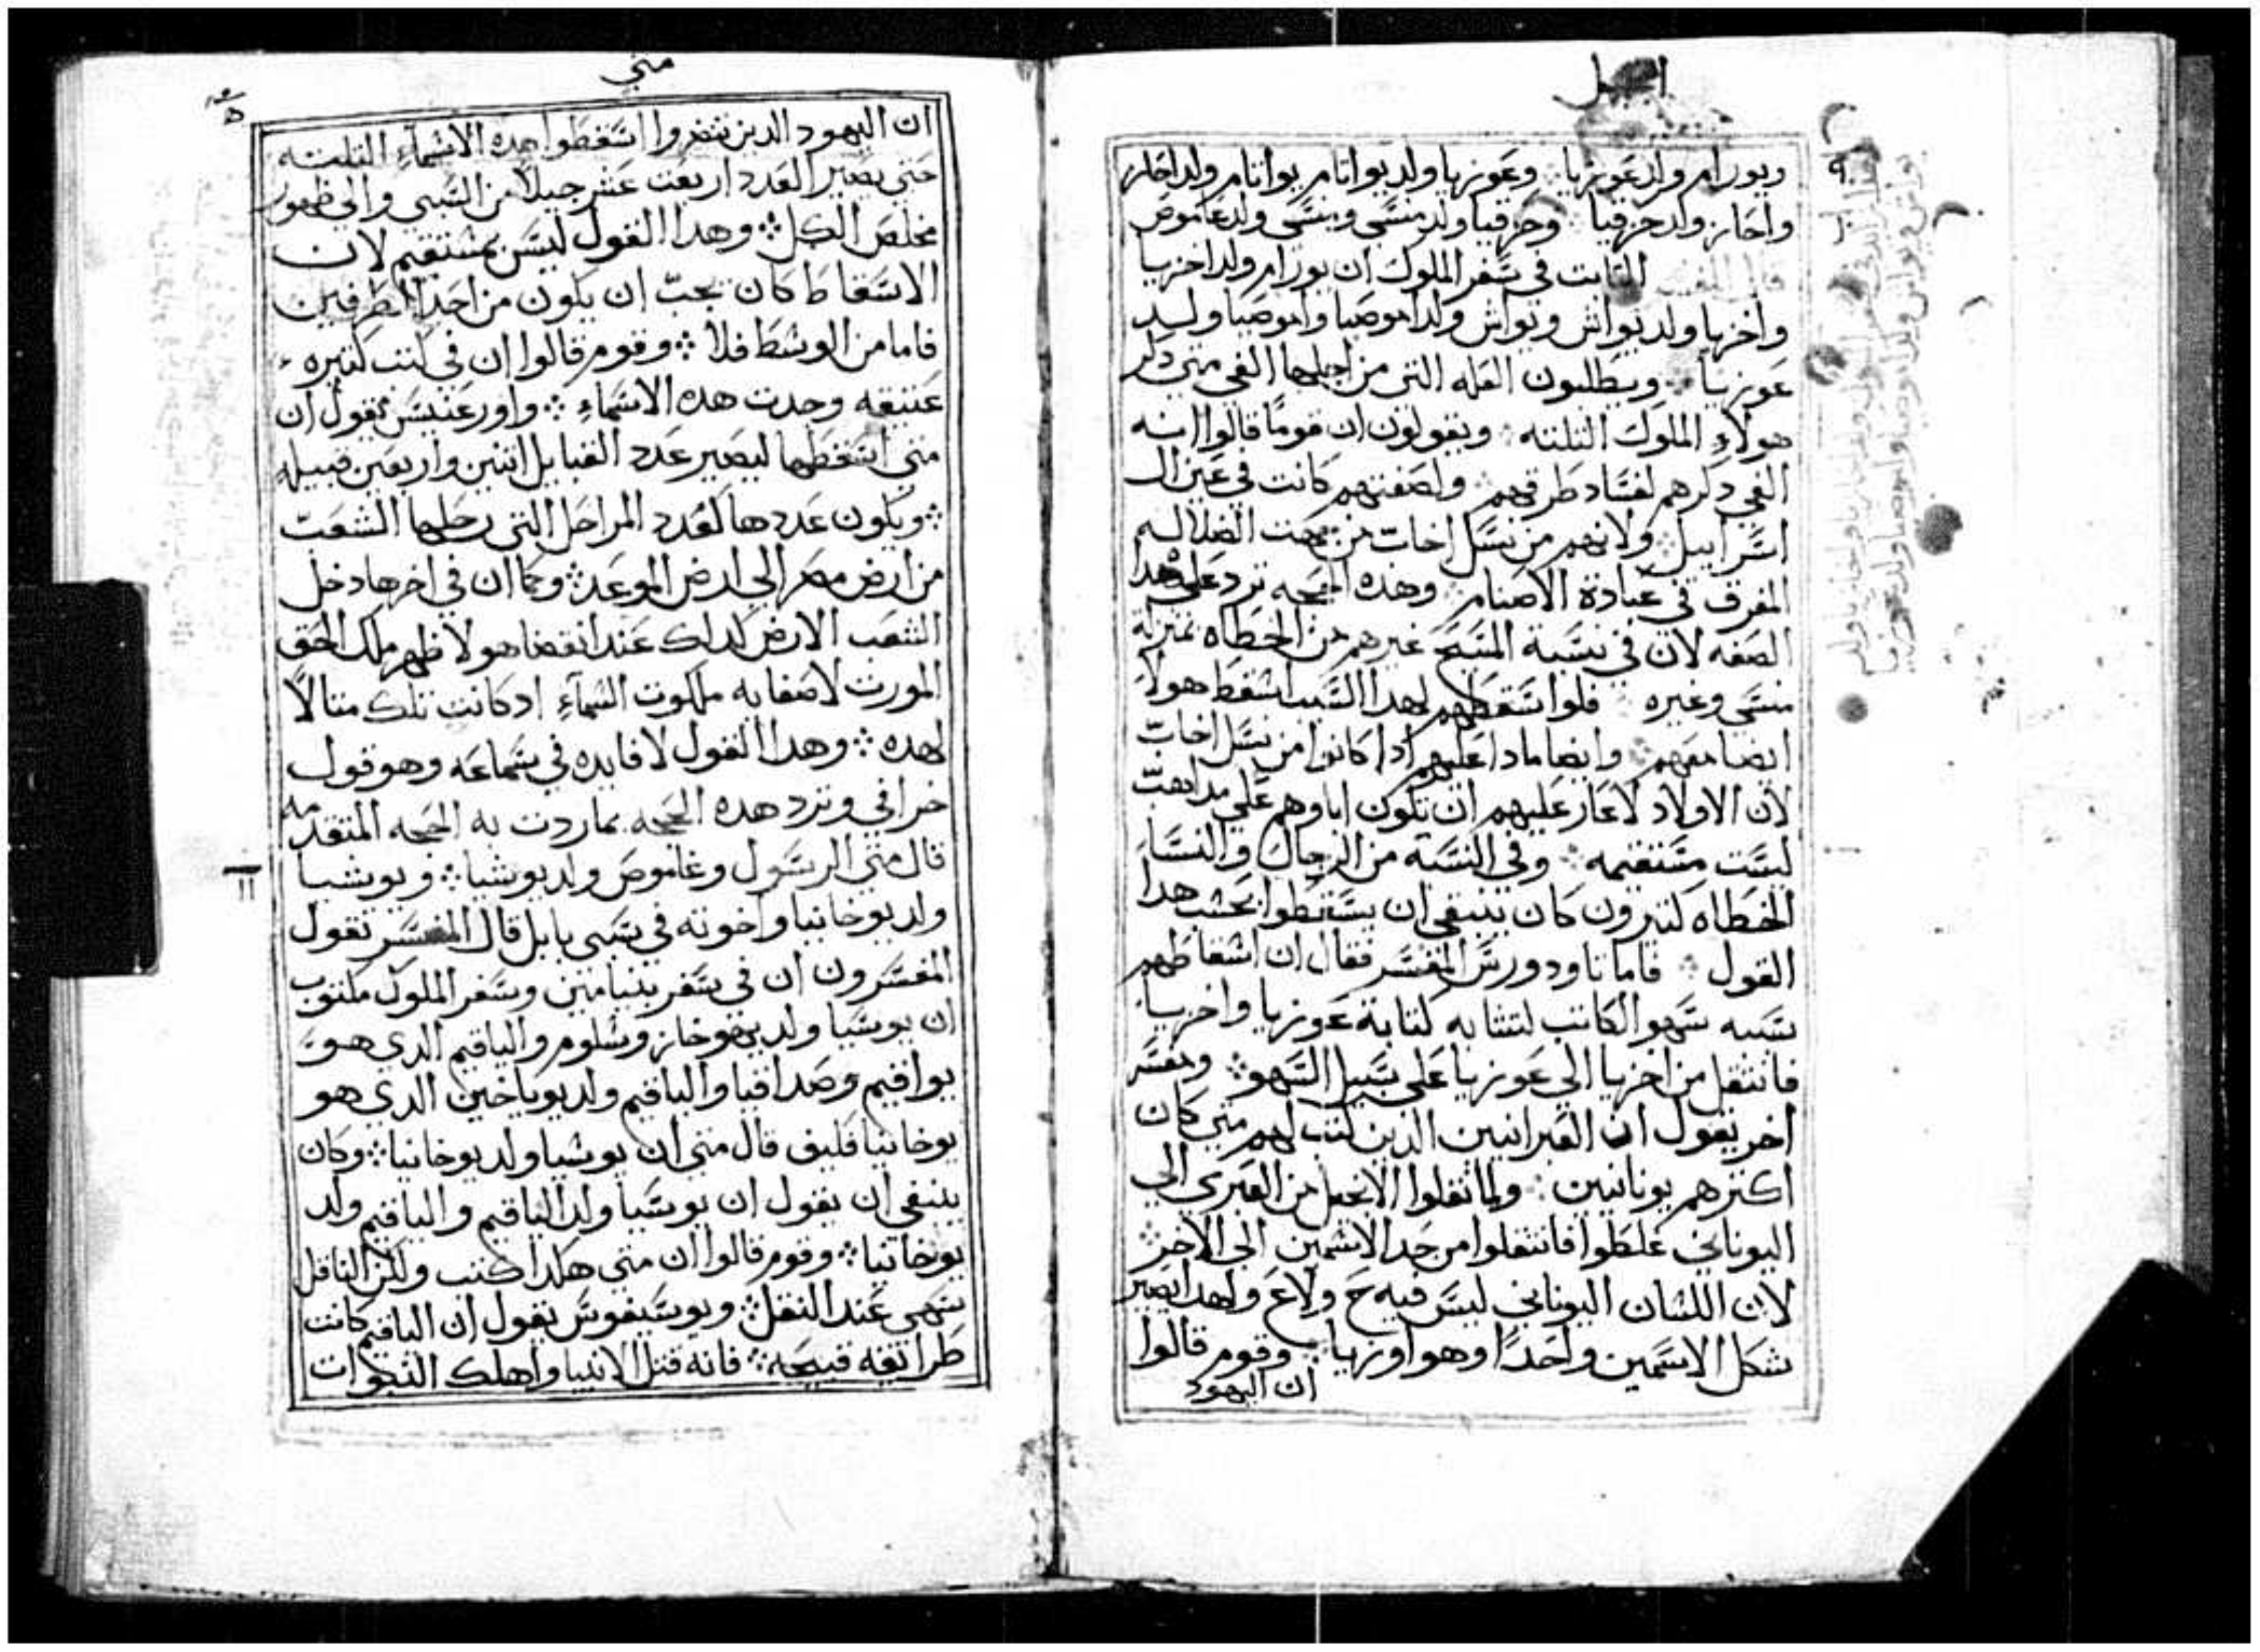 ويورام ولد عوزيا ⁘ وعوزيا ولد يواتام يواتام ولد احاز
واحاز ولد حزقيا ⁘ وحزقيا ولد منسي ومنسي ولد عاموص
الثابت في سفر الملوك ان يورام ولد اخزيا
واخزيا ولد يواش ويواش ولد اموصيا واموصيا ولد
عوزيا ⁘ ويطلبون العله التي من اجلها الغي متي دكر
هولاء الملوك التلته ⁘ ويقولون ان قومًا قالوا انه
الغي دكرهم لفساد طرقهم ⁘ ولصفتهم كانت في عين ال
اسراييل ⁘ ولانهم من نسل اخاب من جهت الضلاله
المغرق في عبادة الاصنام ⁘ وهذه الحجه ترد علي هدا
الصفه لان في نسبة المسيح غيرهم من الخطاه بمنزلة
منسي وغيره ⁘ فلو اسقطهم لهدا السبب اسقط هولاء
ايضا معهم ⁘ وايضا مادا عليهم ادا كانوا من نسل اخاب
لان الاولاد لا عار عليهم ان تكون اباوهم علي مداهب
ليست مستقيمه ⁘ وفي النسبة من الرجال والنسا
الخطاه كتيرون كان ينبغي ان يسقطوا بحسب هدا
القول ⁘ فاما تاودورس المفسر فقال ان اسقاطهم
سببه سهو الكاتب لتشابه كتابة عوزيا واخزيا
فانتقل من اخزيا الي عوزيا علي سبيل السهو ⁘ ومفسر
اخر يقول ان العبرانيين الدين كتب لهم متي كان
اكترهم يونانيين ⁘ ولما نقلوا الانجيل من العبري الي
اليوناني غلطوا فانتقلوا من حد الاسمين الي الاخر ⁘
لان اللسان اليوناني ليس فيه ح ولا ع ولهدا يصير
شكل الاسمين واحدًا وهو اوزيا ⁘ وقوم قالوا
ان اليهود
متي
ان اليهود الدين تنضروا اسقطوا هده الاسماء التلته
حتي يصير العدد اربعت عشر جيلا من السبي والي ظهور
مخلص الكل ⁘ وهدا القول ليس بمستقيم لان
الاسقاط كان يجب ان يكون من احد الطرفين
فاما من الوسط فلا ⁘ وقوم قالوا ان في كتب كتيره
عتيقه وجدت هده الاسماء ⁘ واورغنيس يقول ان
متي اسقطها ليصير عدد القبايل اتنين واربعين قبيله
⁘ ويكون عددها كعدد المراحل التي رحلها الشعب
من ارض مصر الي ارض الموعد ⁘ وكما ان في اخرها دخل
الشعب الارض كدلك عند انقضا هولا ظهر ملك الحق
المورت لاصفايه ملكوت السماء ادكانت تلك متالاً
لهده ⁘ وهدا القول لا فايده في سماعه وهو قول
خرافي وترد هده الحجه بما ردت به الحجه المتقدمه
قال متي الرسول وعاموص ولد يوشيا ⁘ ويوشيا
ولد يوخانيا واخوته في سبي بابل قال المفسر تقول
المفسرون ان في سفر بنيامين وسفر الملوك مكتوب
ان يوشيا ولد يهوخاز وشلوم والياقيم الدي هو
يواقيم وصداقيا والياقيم ولد يوياخين الدي هو
يوخانيا فكيف قال متي ان يوشيا ولد يوخانيا ⁘ وكان
ينبغي ان يقول ان يوشيا ولد الياقيم والياقيم ولد
يوخانيا ⁘ وقوم قالوا ان متي هكدا كتب ولكن الناقل
سهي عند النقل ⁘ ويوسيفوس يقول ان الياقيم كانت
طرايقه قبيحه ⁘ فانه قتل الانبيا واهلك النبوات